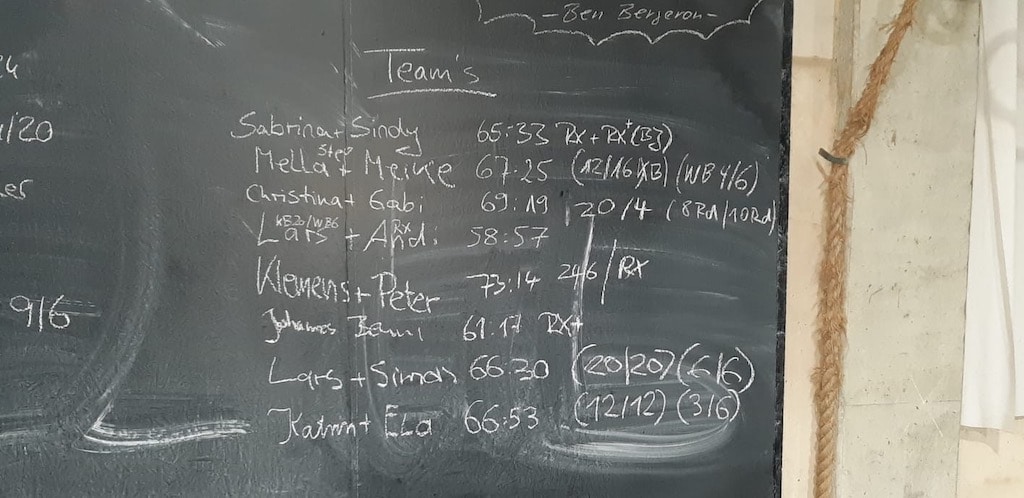 - Ben Bergeron -
Team's
/20
9/6
Sabrina + Sindy 65:33 Rx + Rx+ (Bj)
Step
Mella + Meike 67:25 (12/16 KB) (WB 4/6)
Christina + Gabi 69:19 20/4 (8Rd/10Rd)
KB20/WB6 Rx
Lars + Andi 58:57
Klemens + Peter 73:14 246/RX
Johannes 61:17 RX+
Lars + Simon 66:30 (20/20) (6/6)
Katrin + Ela 66:53 (12/12) (3/6)